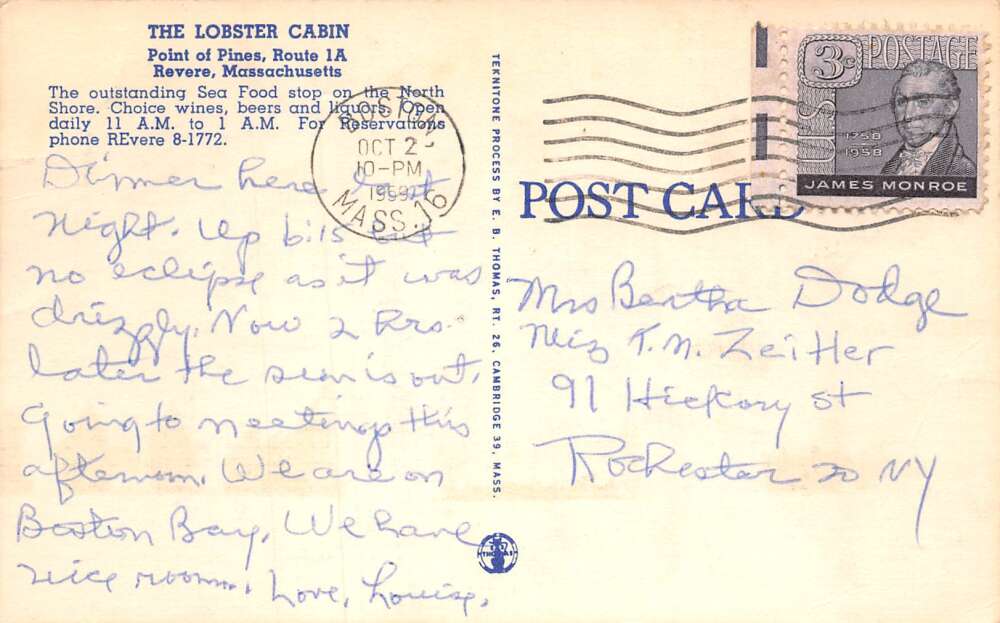 THE LOBSTER CABIN
Point of Pines, Route 1A
Revere, Massachusetts
The outstanding Sea Food stop on the North
Shore. Choice wines, beers and liquors. Open
daily 11 A.M. to 1 A.M. For Reservations
phone REvere 8-1772.
Dinner here last
Night. Up 6:15 but
no eclipse as it was
drizzly. Now 2 hrs.
later the sun is out.
Going to meetings this
afternoon. We are on
Boston Bay. We have
nice room. Love, Louise.
TEKNITONE PROCESS BY E. B. THOMAS, RT. 26, CAMBRIDGE 39, MASS.
THOMAS
BOSTON
OCT 2
10-PM
1959
MASS. 16
3c POSTAGE
U.S.
1758
1958
JAMES MONROE
POST CARD
Mrs Bertha Dodge
T.N. Zeitler
91 Hickory St
Rochester 20 NY